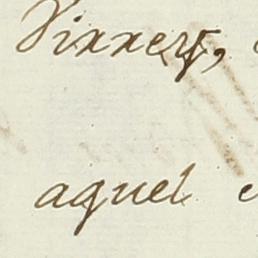 Virrey,
aquel